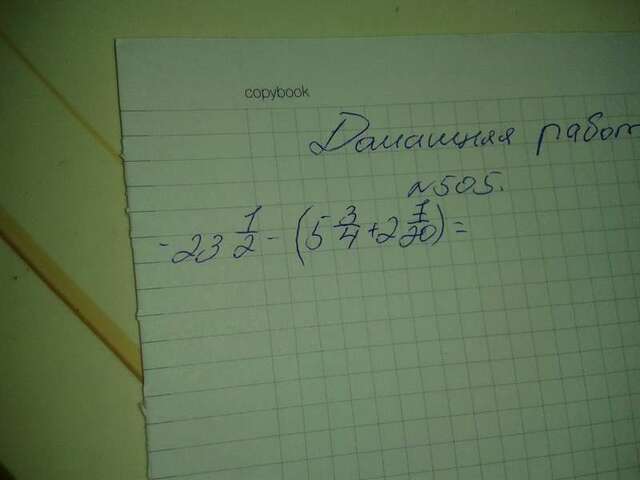 copybook
Домашняя работ
№505.
- 23 1/2 - (5 3/4 + 2 1/20) =